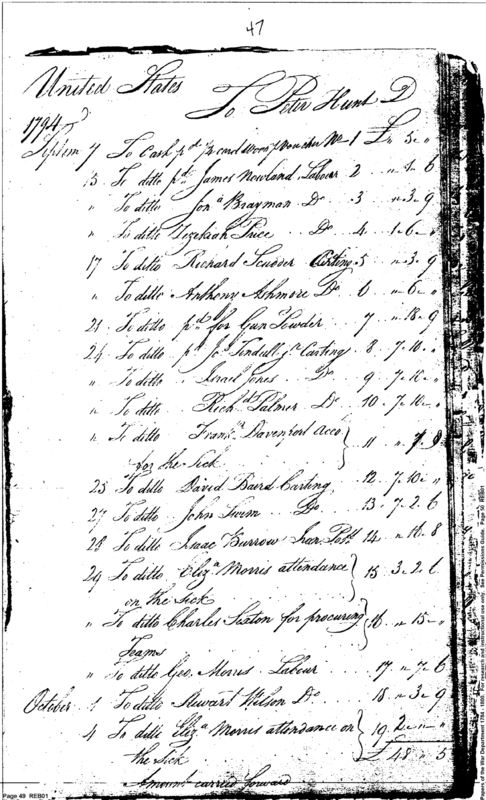 47
United States To Peter Hunt D
1794
Septem 7 To Cash pd 1/2 cord Wood p Voucher No 1 £ " 5 "
13 To ditto pd James Newland, Labour 2 " 1 6
" To ditto Jona Brayman Do 3 " 3 9
" To ditto Hezekiah Price Do 4 1 6 "
17 To ditto Richard Scudder Carting 5 " 3 9
" To ditto Anthony Ashmore Do 6 " 6 "
21 To ditto pd for Gun Powder 7 " 18 9
24 To ditto pd Jos Tindull Jr Carting 8 7 10 "
" To ditto Israel Jones Do 9 7 10 "
" To ditto Richd Palmer Do 10 7 10 "
" To ditto Frans Davenport Acco
for the Sick 11 " 7 9
25 To ditto David Baird Carting 12 7 10 "
27 To ditto John Swim Do 13 7 2 6
28 To ditto Isaac Burrow 14 " 16 8
29 To ditto Eliza Morris attendance
on the Sick 15 3 2 6
" To ditto Charles Sexton for procuring
Teams 16 " 15 "
" To ditto Geo. Morris Labour 17 " 7 6
October 1 To ditto Stewart Wilson Do 18 " 3 9
4 To ditto Eliza Morris attendance on
the Sick 19 2 " "
£ 48 " 5
Amount carried forward
Page 49 REB01
Papers of the War Department 1784 - 1800. For research and instructional use only. See Permissions Guide. Page 50 REB01